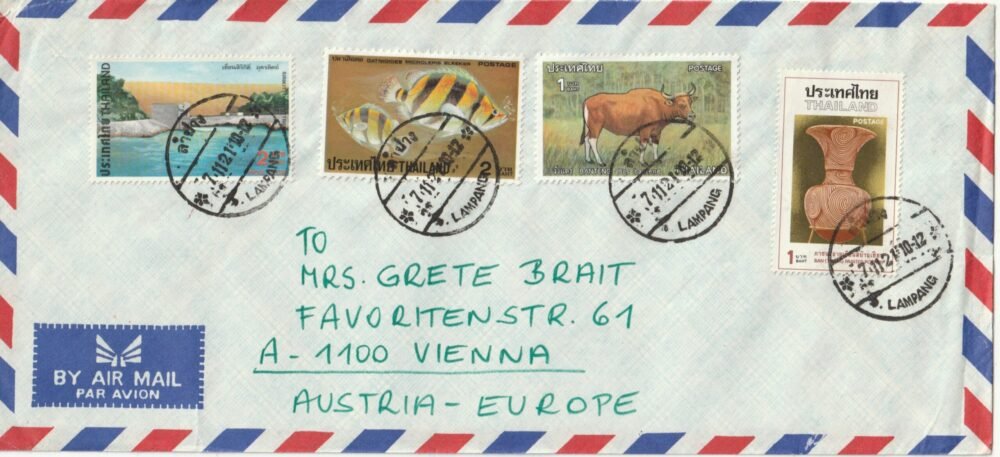 ประเทศไทย THAILAND
ปลาเสือตอ DATNIOIDES MICROLEPIS BLEEKER POSTAGE
ประเทศไทย THAILAND 2
ประเทศไทย POSTAGE
1 บาท BAHT
THAILAND
ประเทศไทย
THAILAND
POSTAGE
1 บาท BAHT
ลำปาง
7.11.21 10-12
LAMPANG
ลำปาง
7.11.2
LAMPANG
ลำปาง
7.11.21 10-12
LAMPANG
7.11.21 10-12
LAMPANG
TO
MRS. GRETE BRAIT
FAVORITENSTR. 61
A-1100 VIENNA
AUSTRIA-EUROPE
BY AIR MAIL
PAR AVION